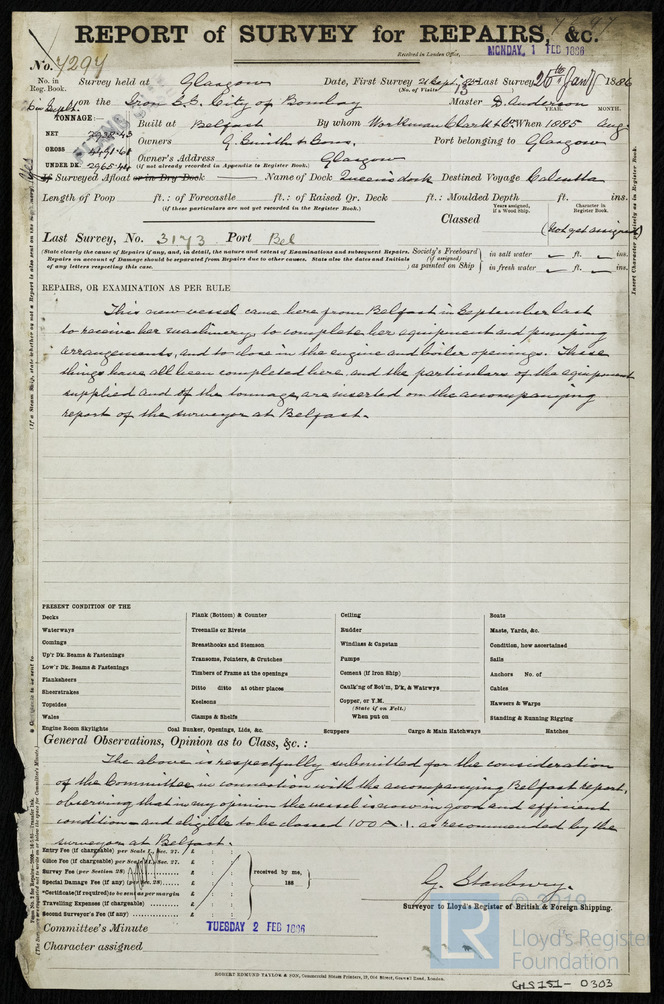 REPORT of SURVEY for REPAIRS, &c.
No. 7297
Received in London Office,
MONDAY, 1 FEB 1886
No. in Reg. Book.
Survey held at Glasgow
Date, First Survey 21 Sept. 85 Last Survey 25th Jany 1886
(No. of Visits 13 )
on the Iron S.S. City of Bombay
Master D. Anderson
TONNAGE:
YEAR. MONTH.
NET
Built at Belfast
By whom Workman Clark & Co. When 1885 Aug
GROSS 4491.68
Owners G. Smith & Sons.
Port belonging to Glasgow
UNDER DK. 2965.44
Owner's Address Glasgow
(if not already recorded in Appendix to Register Book.)
If Surveyed Afloat or in Dry Dock
Name of Dock Queen's dock
Destined Voyage Calcutta
Length of Poop ft.: of Forecastle ft.: of Raised Qr. Deck ft.: Moulded Depth ft. ins.
(if these particulars are not yet recorded in the Register Book.)
Years assigned, if a Wood Ship.
Character in Register Book.
Classed (Not yet assigned)
Last Survey, No. 3173 Port Bel
(State clearly the cause of Repairs if any, and, in detail, the nature and extent of Examinations and subsequent Repairs.
Repairs on account of Damage should be separated from Repairs due to other causes. State also the dates and Initials
of any letters respecting this case.
Society's Freeboard (if assigned) as painted on Ship
in salt water – ft. – ins.
in fresh water – ft. – ins.
REPAIRS, OR EXAMINATION AS PER RULE
This new vessel came here from Belfast in September last
to receive her machinery, to complete her equipment and pumping
arrangements, and to close in the engine and boiler openings. These
things have all been completed here, and the particulars of the equipment
supplied and of the tonnage, are inserted on the accompanying
report of the surveyor at Belfast.
PRESENT CONDITION OF THE
Decks
Waterways
Comings
Up'r Dk. Beams & Fastenings
Low'r Dk. Beams & Fastenings
Planksheers
Sheerstrakes
Topsides
Wales
Engine Room Skylights
Plank (Bottom) & Counter
Treenails or Rivets
Breasthooks and Stemson
Transoms, Pointers, & Crutches
Timbers of Frame at the openings
Ditto ditto at other places
Keelsons
Clamps & Shelfs
Coal Bunker, Openings, Lids, &c.
Ceiling
Rudder
Windlass & Capstan
Pumps
Cement (if Iron Ship)
Caulk'ng of Bot'm, D'k, & Watrwys
Copper, or Y.M.
(State if on Felt.)
When put on
Scuppers
Cargo & Main Hatchways
Boats
Masts, Yards, &c.
Condition, how ascertained
Sails
Anchors No. of
Cables
Hawsers & Warps
Standing & Running Rigging
Hatches
General Observations, Opinion as to Class, &c.:
The above is respectfully submitted for the consideration
of the Committee in connection with the accompanying Belfast report,
observing that in my opinion the vessel is now in good and efficient
condition and eligible to be classed 100 A.1. as recommended by the
surveyor at Belfast.
Entry Fee (if chargeable) per Scale I., Sec. 27. £ : :
Office Fee (if chargeable) per Scale II., Sec. 27. £ : :
Survey Fee (per Section 28) £ : :
Special Damage Fee (if any) (per Sec. 28) £ : :
*Certificate (if required) to be sent as per margin
Travelling Expenses (if chargeable) £ : :
Second Surveyor's Fee (if any) £ : :
received by me,
188
G. Stanbury.
Surveyor to Lloyd's Register of British & Foreign Shipping.
Committee's Minute
TUESDAY 2 FEB 1886
Character assigned
ROBERT EDMUND TAYLOR & SON, Commercial Steam Printers, 19, Old Street, Goswell Road, London.
© 2019
LR
Lloyd's Register
Foundation
GLS 151 - 0303